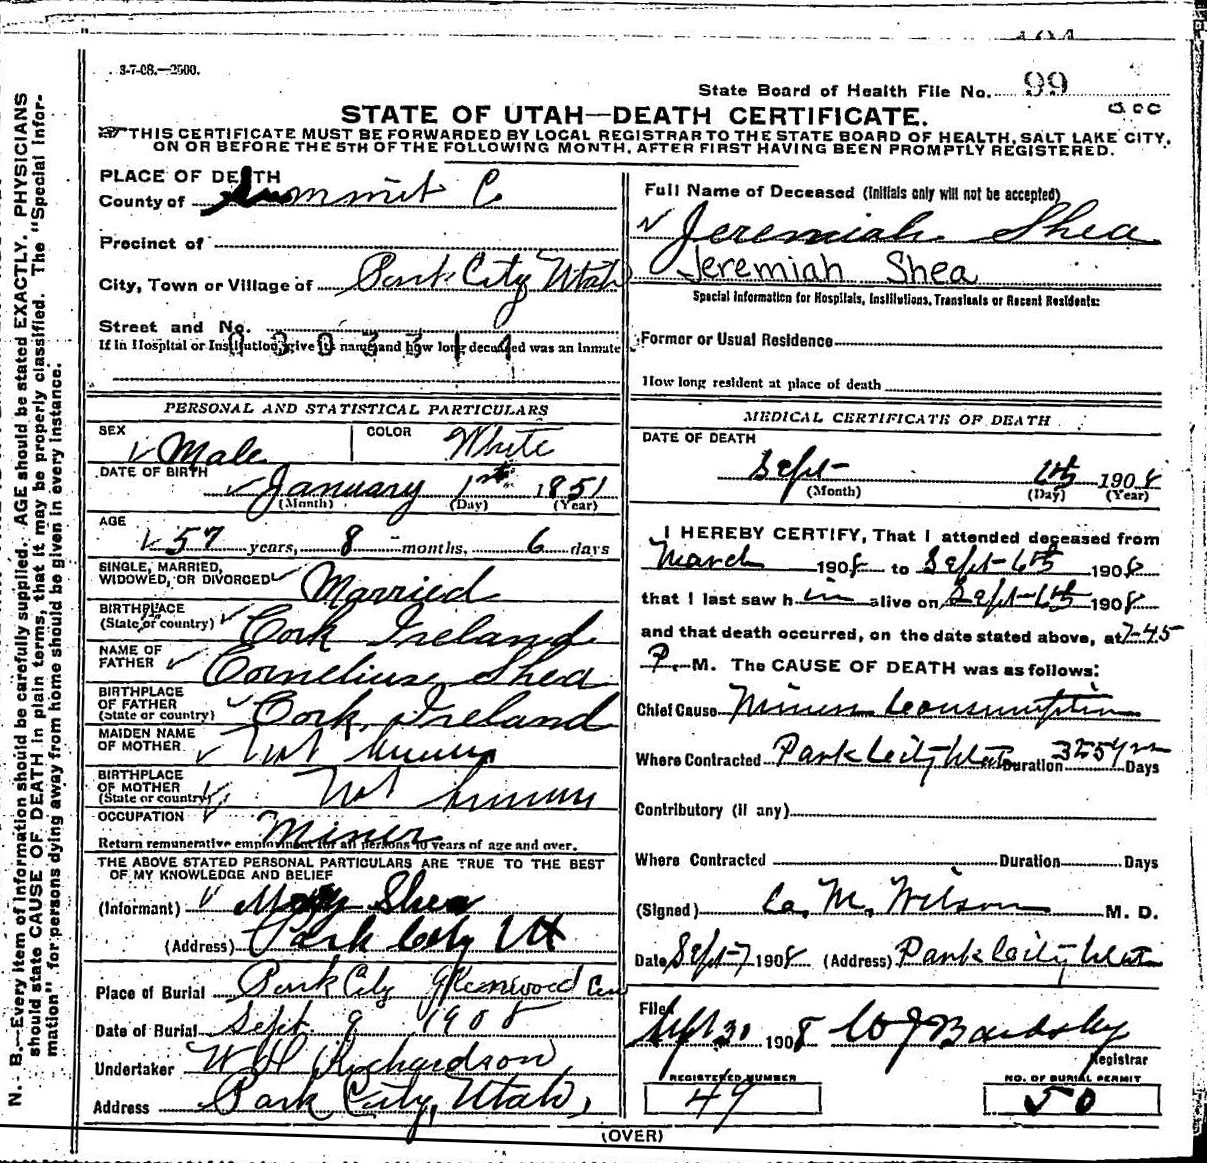 3-7-08.—2500.
State Board of Health File No. 99
STATE OF UTAH—DEATH CERTIFICATE.
THIS CERTIFICATE MUST BE FORWARDED BY LOCAL REGISTRAR TO THE STATE BOARD OF HEALTH, SALT LAKE CITY,
ON OR BEFORE THE 5TH OF THE FOLLOWING MONTH, AFTER FIRST HAVING BEEN PROMPTLY REGISTERED.
N. B.—Every item of information should be carefully supplied. AGE should be stated EXACTLY. PHYSICIANS
should state CAUSE OF DEATH in plain terms, that it may be properly classified. The "Special Infor-
mation" for persons dying away from home should be given in every instance.
PLACE OF DEATH
County of Summit C
Precinct of
City, Town or Village of Park City Utah
Street and No.
If In Hospital or Institution, give its name and how long deceased was an inmate
PERSONAL AND STATISTICAL PARTICULARS
SEX Male COLOR White
DATE OF BIRTH January 1st 1851
(Month) (Day) (Year)
AGE
57 years, 8 months, 6 days
SINGLE, MARRIED,
WIDOWED, OR DIVORCED Married
BIRTHPLACE
(State or country) Cork Ireland
NAME OF
FATHER Cornelius Shea
BIRTHPLACE
OF FATHER
(State or country) Cork, Ireland
MAIDEN NAME
OF MOTHER Not
BIRTHPLACE
OF MOTHER
(State or country) Not
OCCUPATION Miner
Return remunerative employment for all persons 10 years of age and over.
THE ABOVE STATED PERSONAL PARTICULARS ARE TRUE TO THE BEST
OF MY KNOWLEDGE AND BELIEF
(Informant) Mary Shea
(Address) Park City Ut
Place of Burial Park City Glenwood Cem
Date of Burial Sept. 9 1908
Undertaker W H Richardson
Address Park City, Utah,
Full Name of Deceased (Initials only will not be accepted)
Jeremiah Shea
Jeremiah Shea
Special Information for Hospitals, Institutions, Transients or Recent Residents:
Former or Usual Residence
How long resident at place of death
MEDICAL CERTIFICATE OF DEATH
DATE OF DEATH
Sept 6th 1908
(Month) (Day) (Year)
I HEREBY CERTIFY, That I attended deceased from
March 1908 to Sept-6th 1908
that I last saw him alive on Sept-6th 1908
and that death occurred, on the date stated above, at 7-45
P. M. The CAUSE OF DEATH was as follows:
Chief Cause Miners Consumption
Where Contracted Park City Utah Duration Days
Contributory (if any)
Where Contracted Duration Days
(Signed) M. Wilson M. D.
Date Sept-7 1908 (Address) Park City Utah
Filed Sept 30 1908 W J Bardsley
Registrar
REGISTERED NUMBER
49
NO. OF BURIAL PERMIT
50
(OVER)